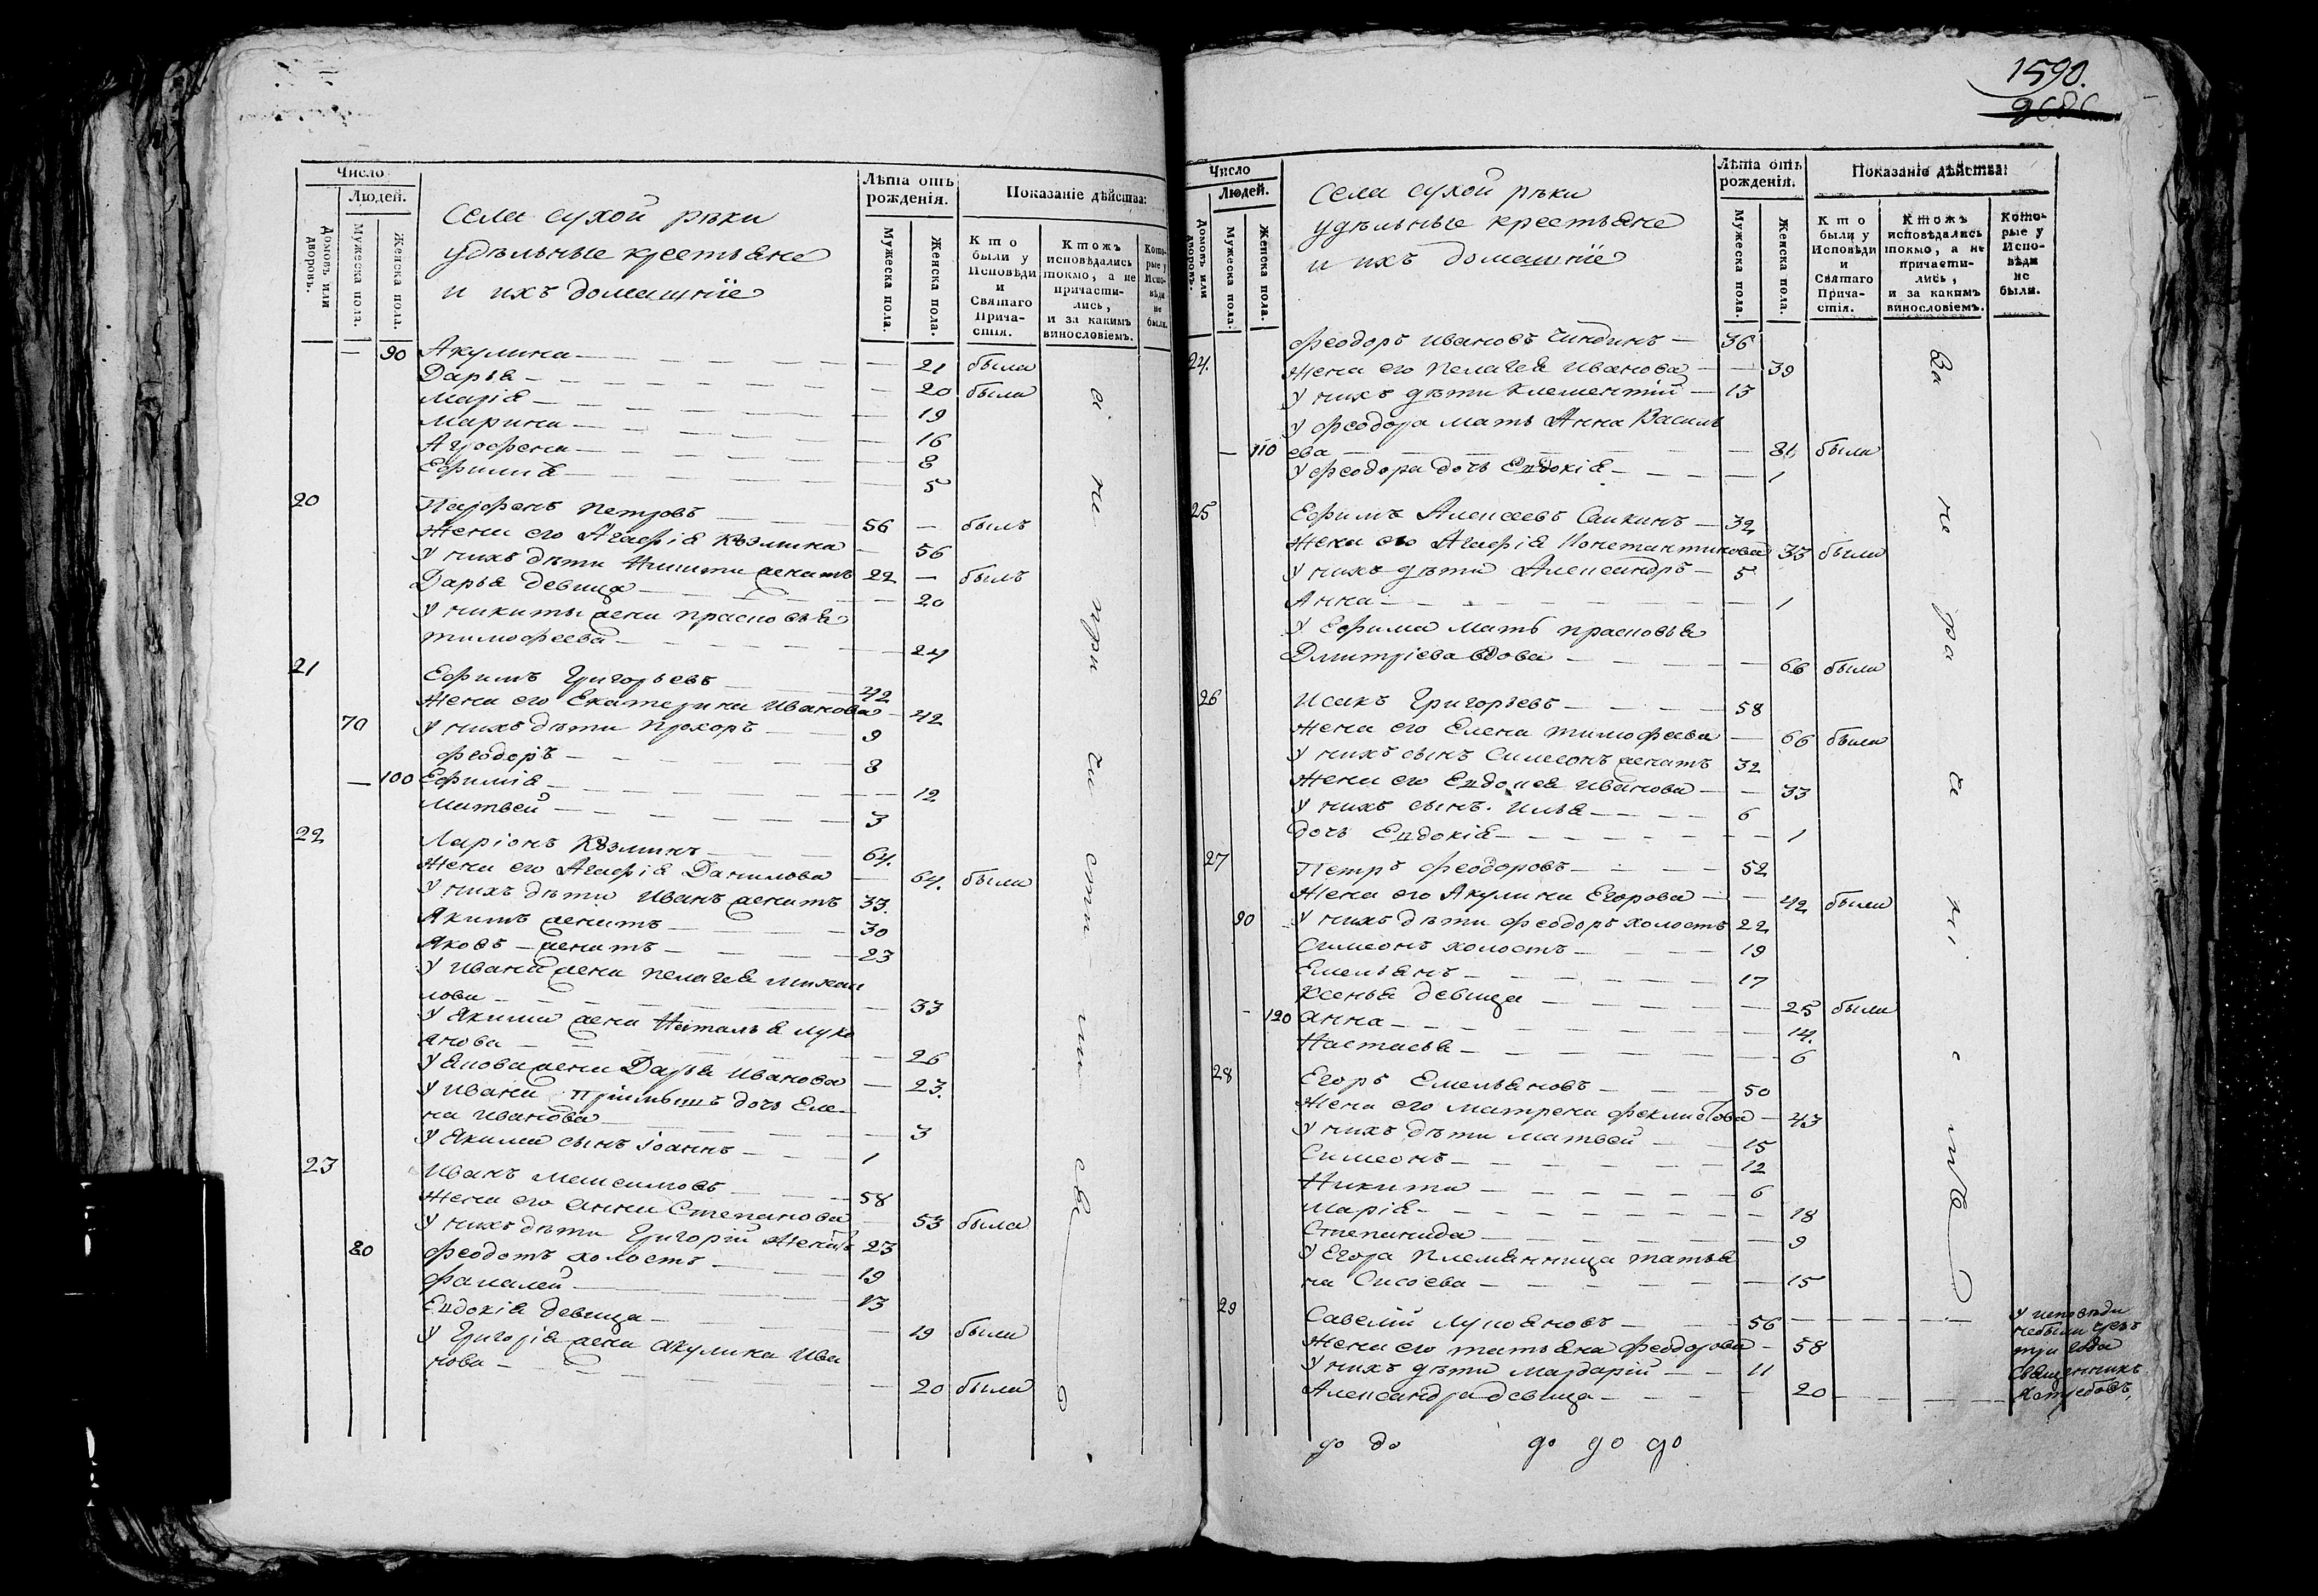 Число
Людей.
Домовъ или дворовъ.
Мужеска пола.
Женска пола.
Села сухой рѣки
удѣльные крестьяне
и ихъ домашнїе
Лѣта отъ рожденія.
Мужеска пола.
Женска пола.
Показаніе дѣйства:
Кто были у Исповѣди и Святаго Прича-стія.
Ктожъ исповѣдались токмо, а не причасти-лись, и за какимъ винословіемъ.
Кото-рые у Испо-вѣди не были.
— 90 Акулина — — 21 была
Дарья — — 20 была
Марія — — 19
Марина — — 16
Агрофена — — 8
Ефимія — — 5
20 Парфенъ Петровъ 56 — былъ
Жена его Агафія Кузмина — 56
У нихъ дѣти Никита женатъ 22 — былъ
Дарья девица — — 20
У никиты жена прасковья
тимофеева — — 24
21 Ефимъ Григорьевъ 42
Жена его Екатерина Иванова — 42
70 У нихъ дѣти Прохоръ — 9
Феодоръ — 8
— 100 Ефимія — — 12
Матвей — 3
22 Ларіонъ Кузминъ — 64.
Жена его Агафія Данилова — 64. была
У нихъ дѣти Иванъ женатъ 33.
Якимъ женатъ — 30
Яковъ — женатъ — 23
У Ивана жена пелагея михаи
лова — — 33
У Якима жена Наталья лукя
нова — — 26
У Якова жена Дарья Иванова — 23.
У Ивана Пріимышъ дочь Еле-
на Иванова — — 3
У Якима сынъ Іоаннъ — 1
23 Иванъ Максимовъ — 58
Жена его Анна Степанова — 53 была
У нихъ дѣти Григорій Женатъ 23
80 Феодотъ холостъ — 19
Фалалей — 13
Евдокія девица — — 19 была
У Григорія жена Акулина Ива
нова — — 20 была
а не причастились
1590.
Число
Людей.
Домовъ или дворовъ.
Мужеска пола.
Женска пола.
Села сухой рѣки
удѣльные крестьяне
и ихъ домашнїе
Лѣта отъ рожденія.
Мужеска пола.
Женска пола.
Показаніе дѣйства:
Кто были у Исповѣди и Святаго Прича-стія.
Ктожъ исповѣдались токмо, а не причасти-лись, и за какимъ винословіемъ.
Кото-рые у Испо-вѣди не были.
24. Феодоръ Ивановъ Чиндинъ — 36
Жена его Пелагея Иванова — — 39
У нихъ дѣти Клементій — 13
У Феодора мать Анна Василь
— 110 ева — — 81 была
У Феодора дочь Евдокія — — 1
25 Ефимъ Алексеевъ Саикинъ — 32
Жена его Агафія Константинова 33 была
У нихъ дѣти Александръ — 5
Анна — — 1
У Ефима мать прасковья
Дмитріева вдова — — 66 была
26 Исакъ Григорьевъ — 58
Жена его Елена тимофеева — 66 была
У нихъ сынъ Симеонъ женатъ 32
Жена его Евдокея Иванова — — 33
У нихъ сынъ. Илья — 6
дочь Евдокія — — 1
27 Петръ Феодоровъ — 52
Жена его Акулина Егорова — — 42 была
90 У нихъ дѣти Феодоръ холостъ 22
Симеонъ холостъ — 19
Емельянъ — 17
Ксенья девица — — 25 была
— 120 Анна — — 14.
Настасья — — 6
28 Егоръ Емельяновъ — 50
Жена его матрена Феклистова — 43
У нихъ дѣти Матвей — 15
Симеонъ — 12
Никита — 6
Марія — — 18
Степанида — — 9
У Егора племянница татья
на Сисоева — — 15
29 Савелій Лукояновъ — 56 — —
Жена его татьяна Феодорова — 58
У нихъ дѣти Мардарій — 11
Александра девица — — 20 — —
У исповѣди
небыли чрез
три года
Священникъ
до до до до до